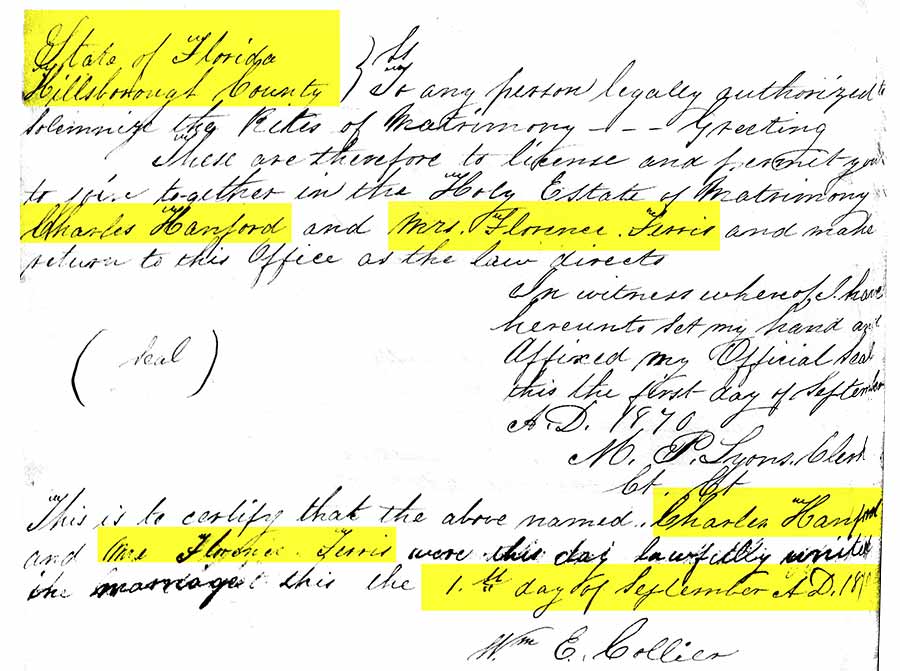 State of Florida } SS
Hillsborough County } To any person legally authorized to
solemnize the Rites of Matrimony - - - Greeting
These are therefore to license and permit you
to join together in the Holy Estate of Matrimony
Charles Hanford and Mrs. Florence Ferris and make
return to this Office as the law directs
In witness whereof I have
hereunto set my hand and
Affixed my Official Seal
(Seal) this the first day of September
A.D. 1870
M. P. Lyons. Clerk
Ct. Ct
This is to certify that the above named. Charles Hanford
and Mrs Florence Ferris were this day lawfully united
in marriage this the 1.st day of September A.D. 18
Wm E. Collier